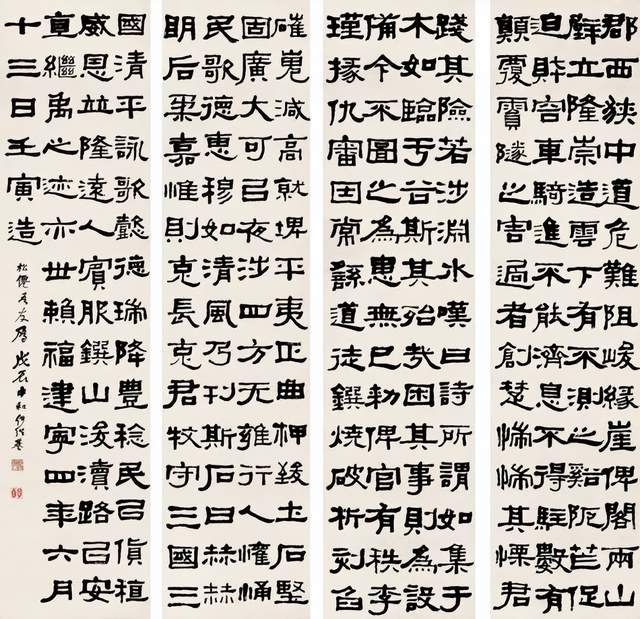 郡西狹中道危難阻峻緣崖俾閣兩山
壁立隆崇造雲下有不測之谿阨芒促
迫財容車騎進不能濟息不得駐數有
顛覆霣隧之害過者創楚惴惴其慄君
踐其險若涉淵氷嘆曰詩所謂如集于
木如臨于谷斯其殆哉困其事則為設
備今不圖之為患無已勅俾官有秩李
瑾掾仇審因常繇道徒鐉燒破析刻臽
磪嵬減高就埤平夷正曲柙致土石堅
固廣大可㠯夜涉四方无雍行人懽悀
民歌德惠穆如清風乃刊斯石曰赫赫
明后柔嘉惟則克長克君牧守三國三
國清平詠歌懿德瑞降豐稔民㠯貨稙
威恩竝隆遠人賓服鐉山浚瀆路㠯安
直繼禹之迹亦世賴福建寧四年六月
十三日壬寅造
松僊友屬戊辰中和何紹基